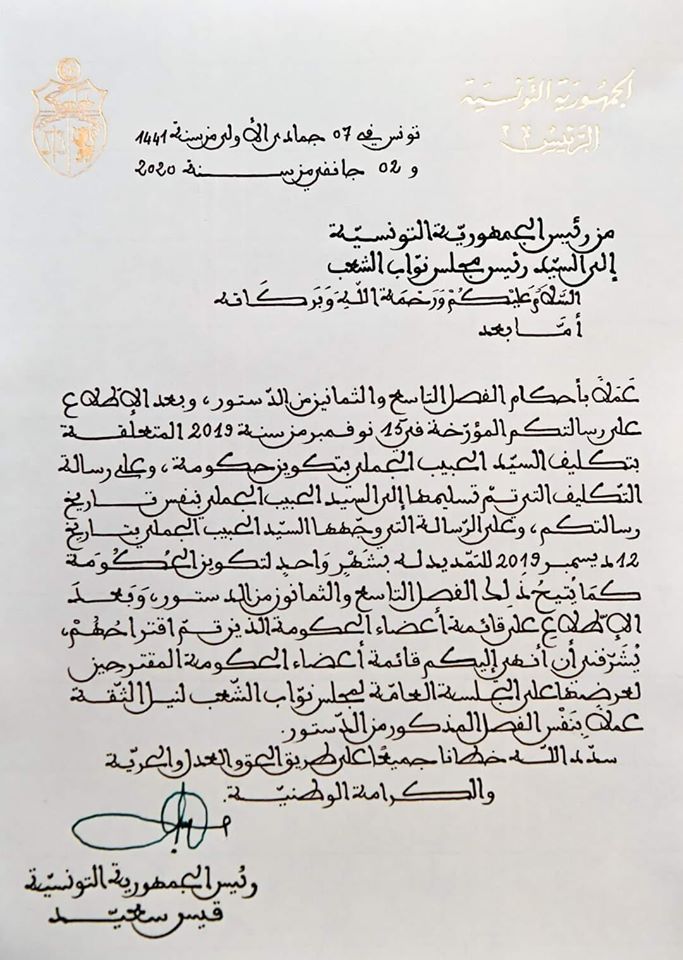 الجمهورية التونسية
الرئيس
تونس في 07 جمادى الأولى من سنة 1441
و 02 جانفي من سنة 2020
من رئيس الجمهوريّة التونسيّة
إلى السيّد رئيس مجلس نوّاب الشعب
السَّلَامُ عَلَيْكُمْ وَرَحْمَةُ اللَّهِ وَبَرَكَاتُهُ
أمَّا بعد
عَمَلًا بأحكام الفصل التاسع والثمانين من الدّستور، وبعد الإطّلاع
على رسالتكم المؤرّخة في 15 نوفمبر من سنة 2019 المتعلقة
بتكليف السيّد الحبيب الجملي بتكوين حكومة، وعلى رسالة
التّكليف التي تمّ تسليمها إلى السيّد الحبيب الجملي بنفس تاريخ
رسالتكم، وعلى الرّسالة التي وجّهها السيّد الحبيب الجملي بتاريخ
12 ديسمبر 2019 للتمديد له بِشَهْرٍ وَاحِدٍ لتكوين الحُكُومَة
كمَا يُتيحُ ذلك الفصل التاسع والثمانون من الدستور، وَبَعْدَ
الإطّلاع على قائمة أعضاء الحكومة الذين تمّ اقتراحُهُمْ،
يُشَرِّفني أن أنهي إليكم قائمة أعضاء الحكومة المقترحين
لعرضها على الجلسة العامّة لمجلس نوّاب الشّعب لنيل الثّقة
عملا بِنَفْسِ الفصل المذكور من الدّستور.
سدّد اللّه خطانا جميعًا على طريق الحق والعدل والحريّة
والكرامة الوطنيّة.
رئيس الجمهورية التونسيّة
قيس سعيّد